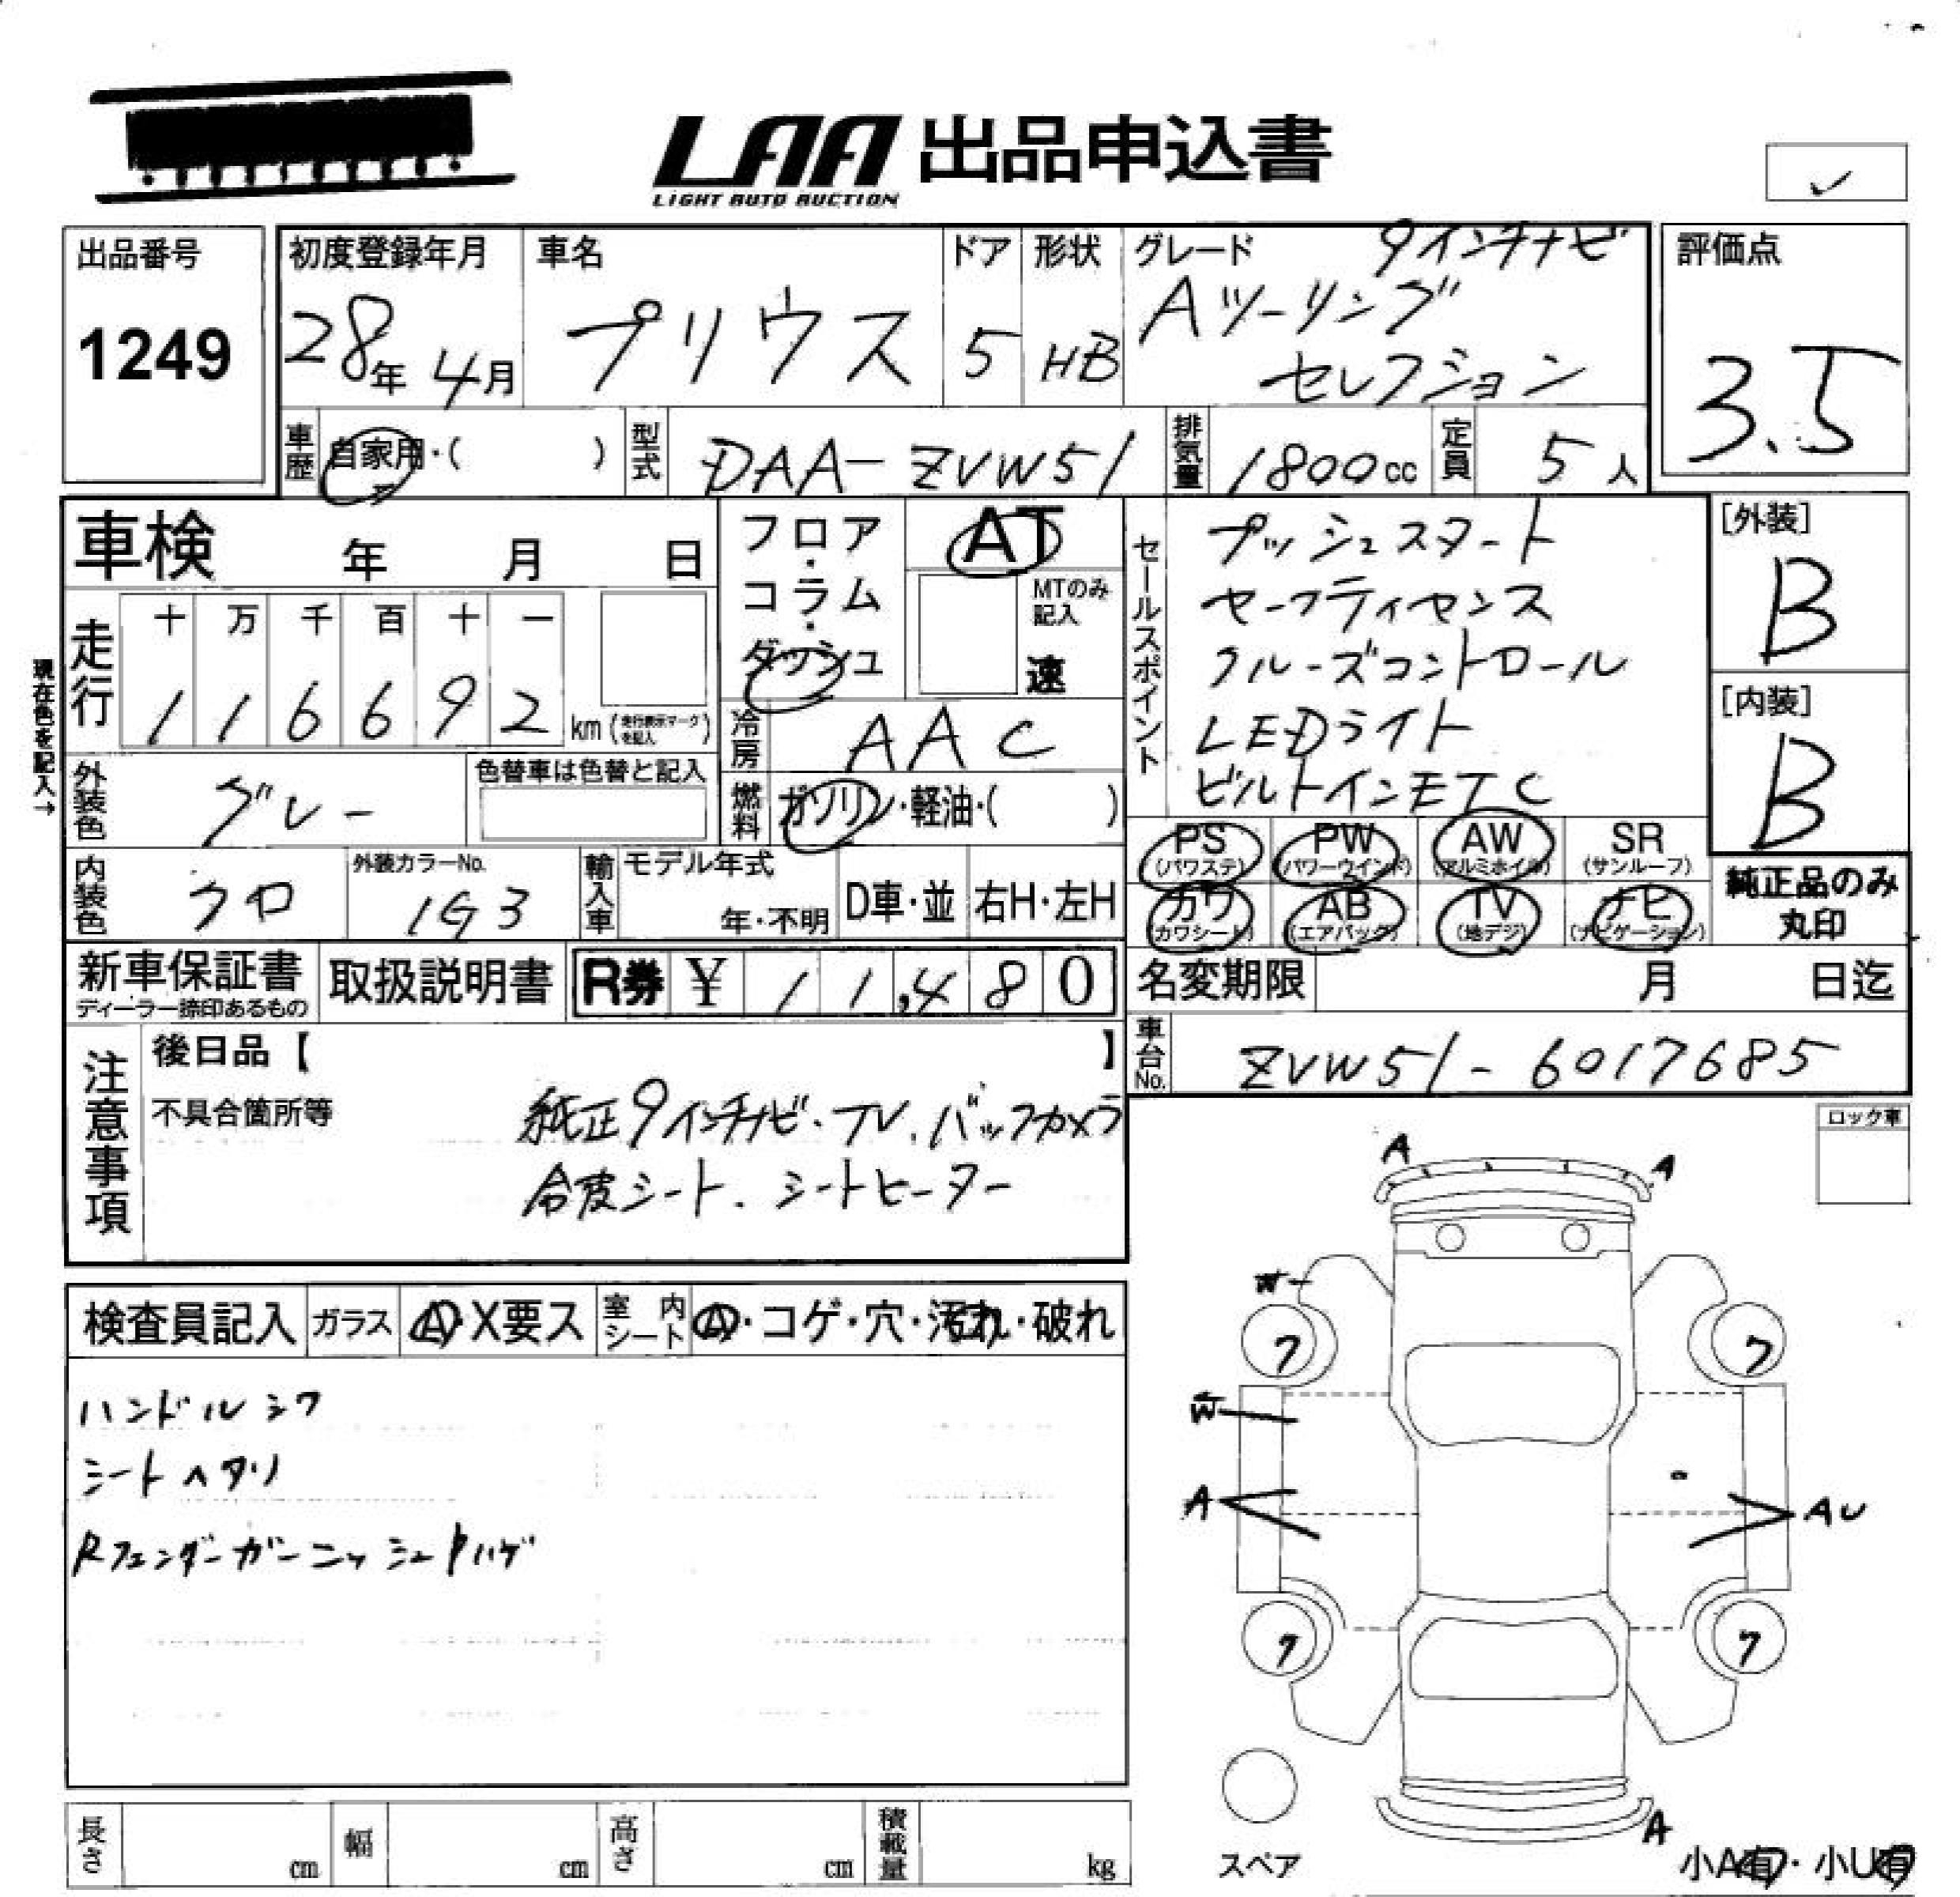 LAA 出品申込書
LIGHT AUTO AUCTION
出品番号
1249
初度登録年月
28年 4月
車名
プリウス
ドア
5
形状
HB
グレード
9インチナビ
Aツーリング
セレクション
評価点
3.5
車歴 自家用・( )
型式 DAA-ZVW51
排気量 1800cc
定員 5人
車検 年 月 日
フロア・コラム・ダッシュ
AT
MTのみ記入
速
セールスポイント
プッシュスタート
セーフティセンス
クルーズコントロール
LEDライト
ビルトインETC
[外装]
B
[内装]
B
現在色を記入→
走行
十 万 千 百 十 一
1 1 6 6 9 2 km (走行表示マークを記入)
冷房 AAC
外装色 グレー
色替車は色替と記入
燃料 ガソリン・軽油・( )
PS (パワステ)
PW (パワーウインド)
AW (アルミホイル)
SR (サンルーフ)
カワ (カワシート)
AB (エアバック)
TV (地デジ)
ナビ (ナビゲーション)
純正品のみ
丸印
内装色 クロ
外装カラーNo.
1G3
輸入車
モデル年式
年・不明
D車・並
右H・左H
新車保証書
ディーラー捺印あるもの
取扱説明書
R券 ¥ 11,480
名変期限 月 日迄
車台No. ZVW51-6017685
注意事項
後日品【 】
不具合箇所等
純正9インチナビ・TV、バックカメラ
合皮シート、シートヒーター
ロック車
検査員記入
ガラス
A・X要ス
室内シート
A・コゲ・穴・汚れ・破れ
ハンドルシワ
シートヘタリ
Rフェンダーガーニッシュトハゲ
A
A
W
7
7
W
A
AU
7
7
A
スペア
小A有・小U有
長さ cm
幅 cm
高さ cm
積載量 kg